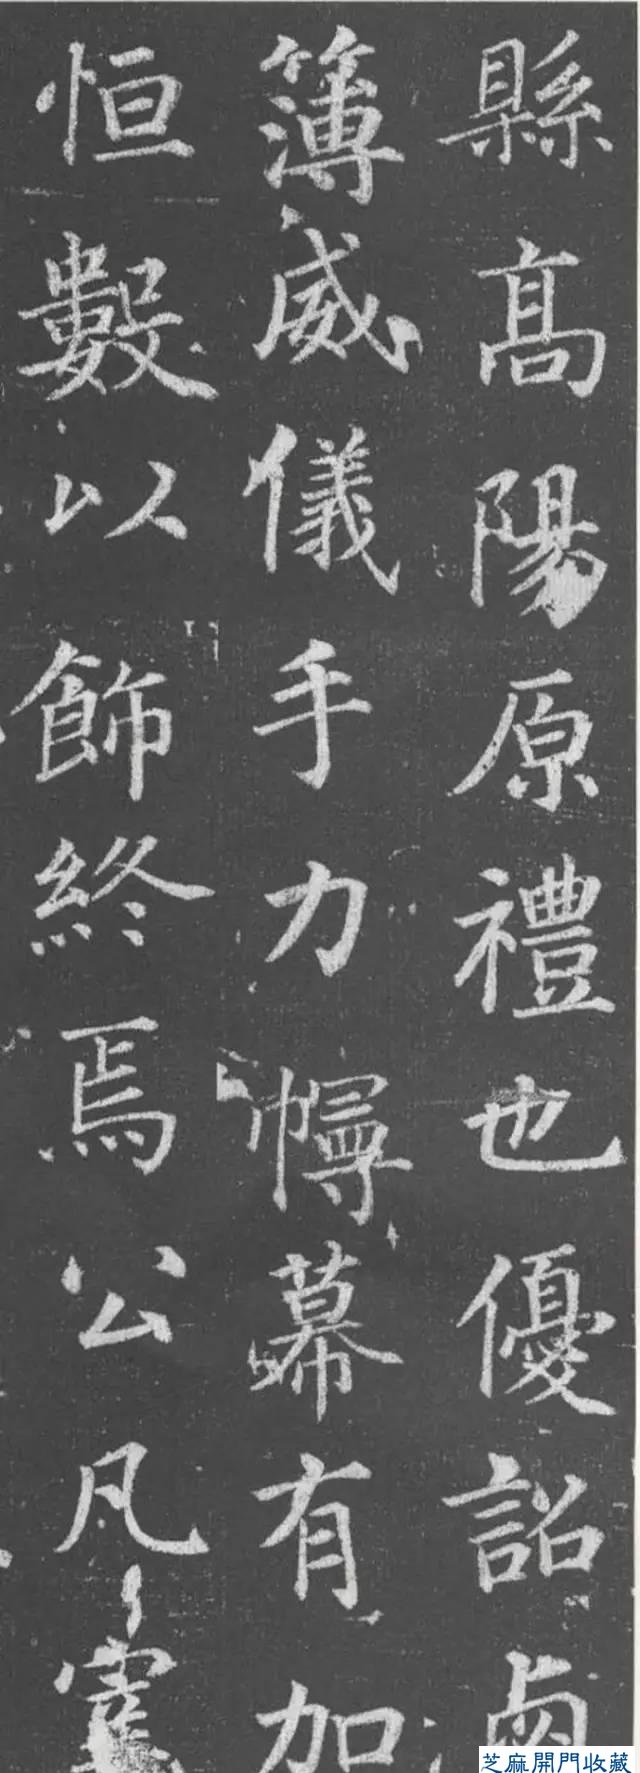 縣高陽原禮也優詔鹵
簿威儀手力幝幕有加
恒數以飾終焉公凡
芝麻開門收藏